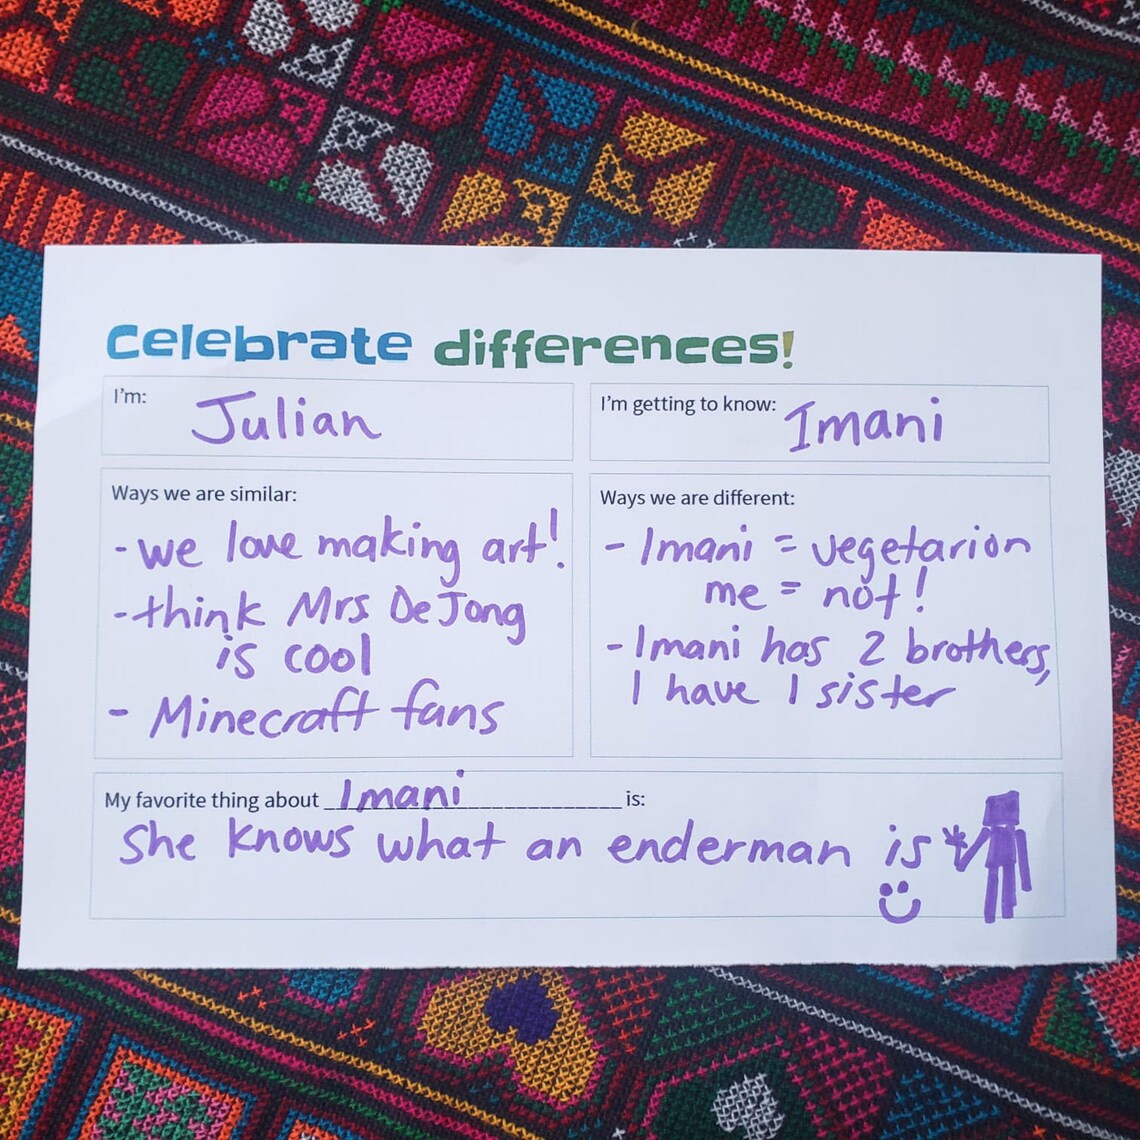 Celebrate differences!
I'm: Julian
I'm getting to know: Imani
Ways we are similar:
- we love making art!
- think Mrs DeJong
is cool
- Minecraft fans
Ways we are different:
- Imani = vegetarion
me = not!
- Imani has 2 brothers,
I have 1 sister
My favorite thing about Imani is:
She knows what an enderman is